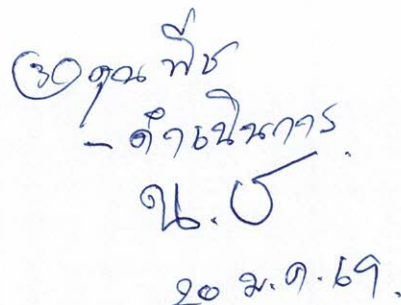 ③ คุณ พืช
- ดำเนินการ
น. ช
20 ม.ค. 69.